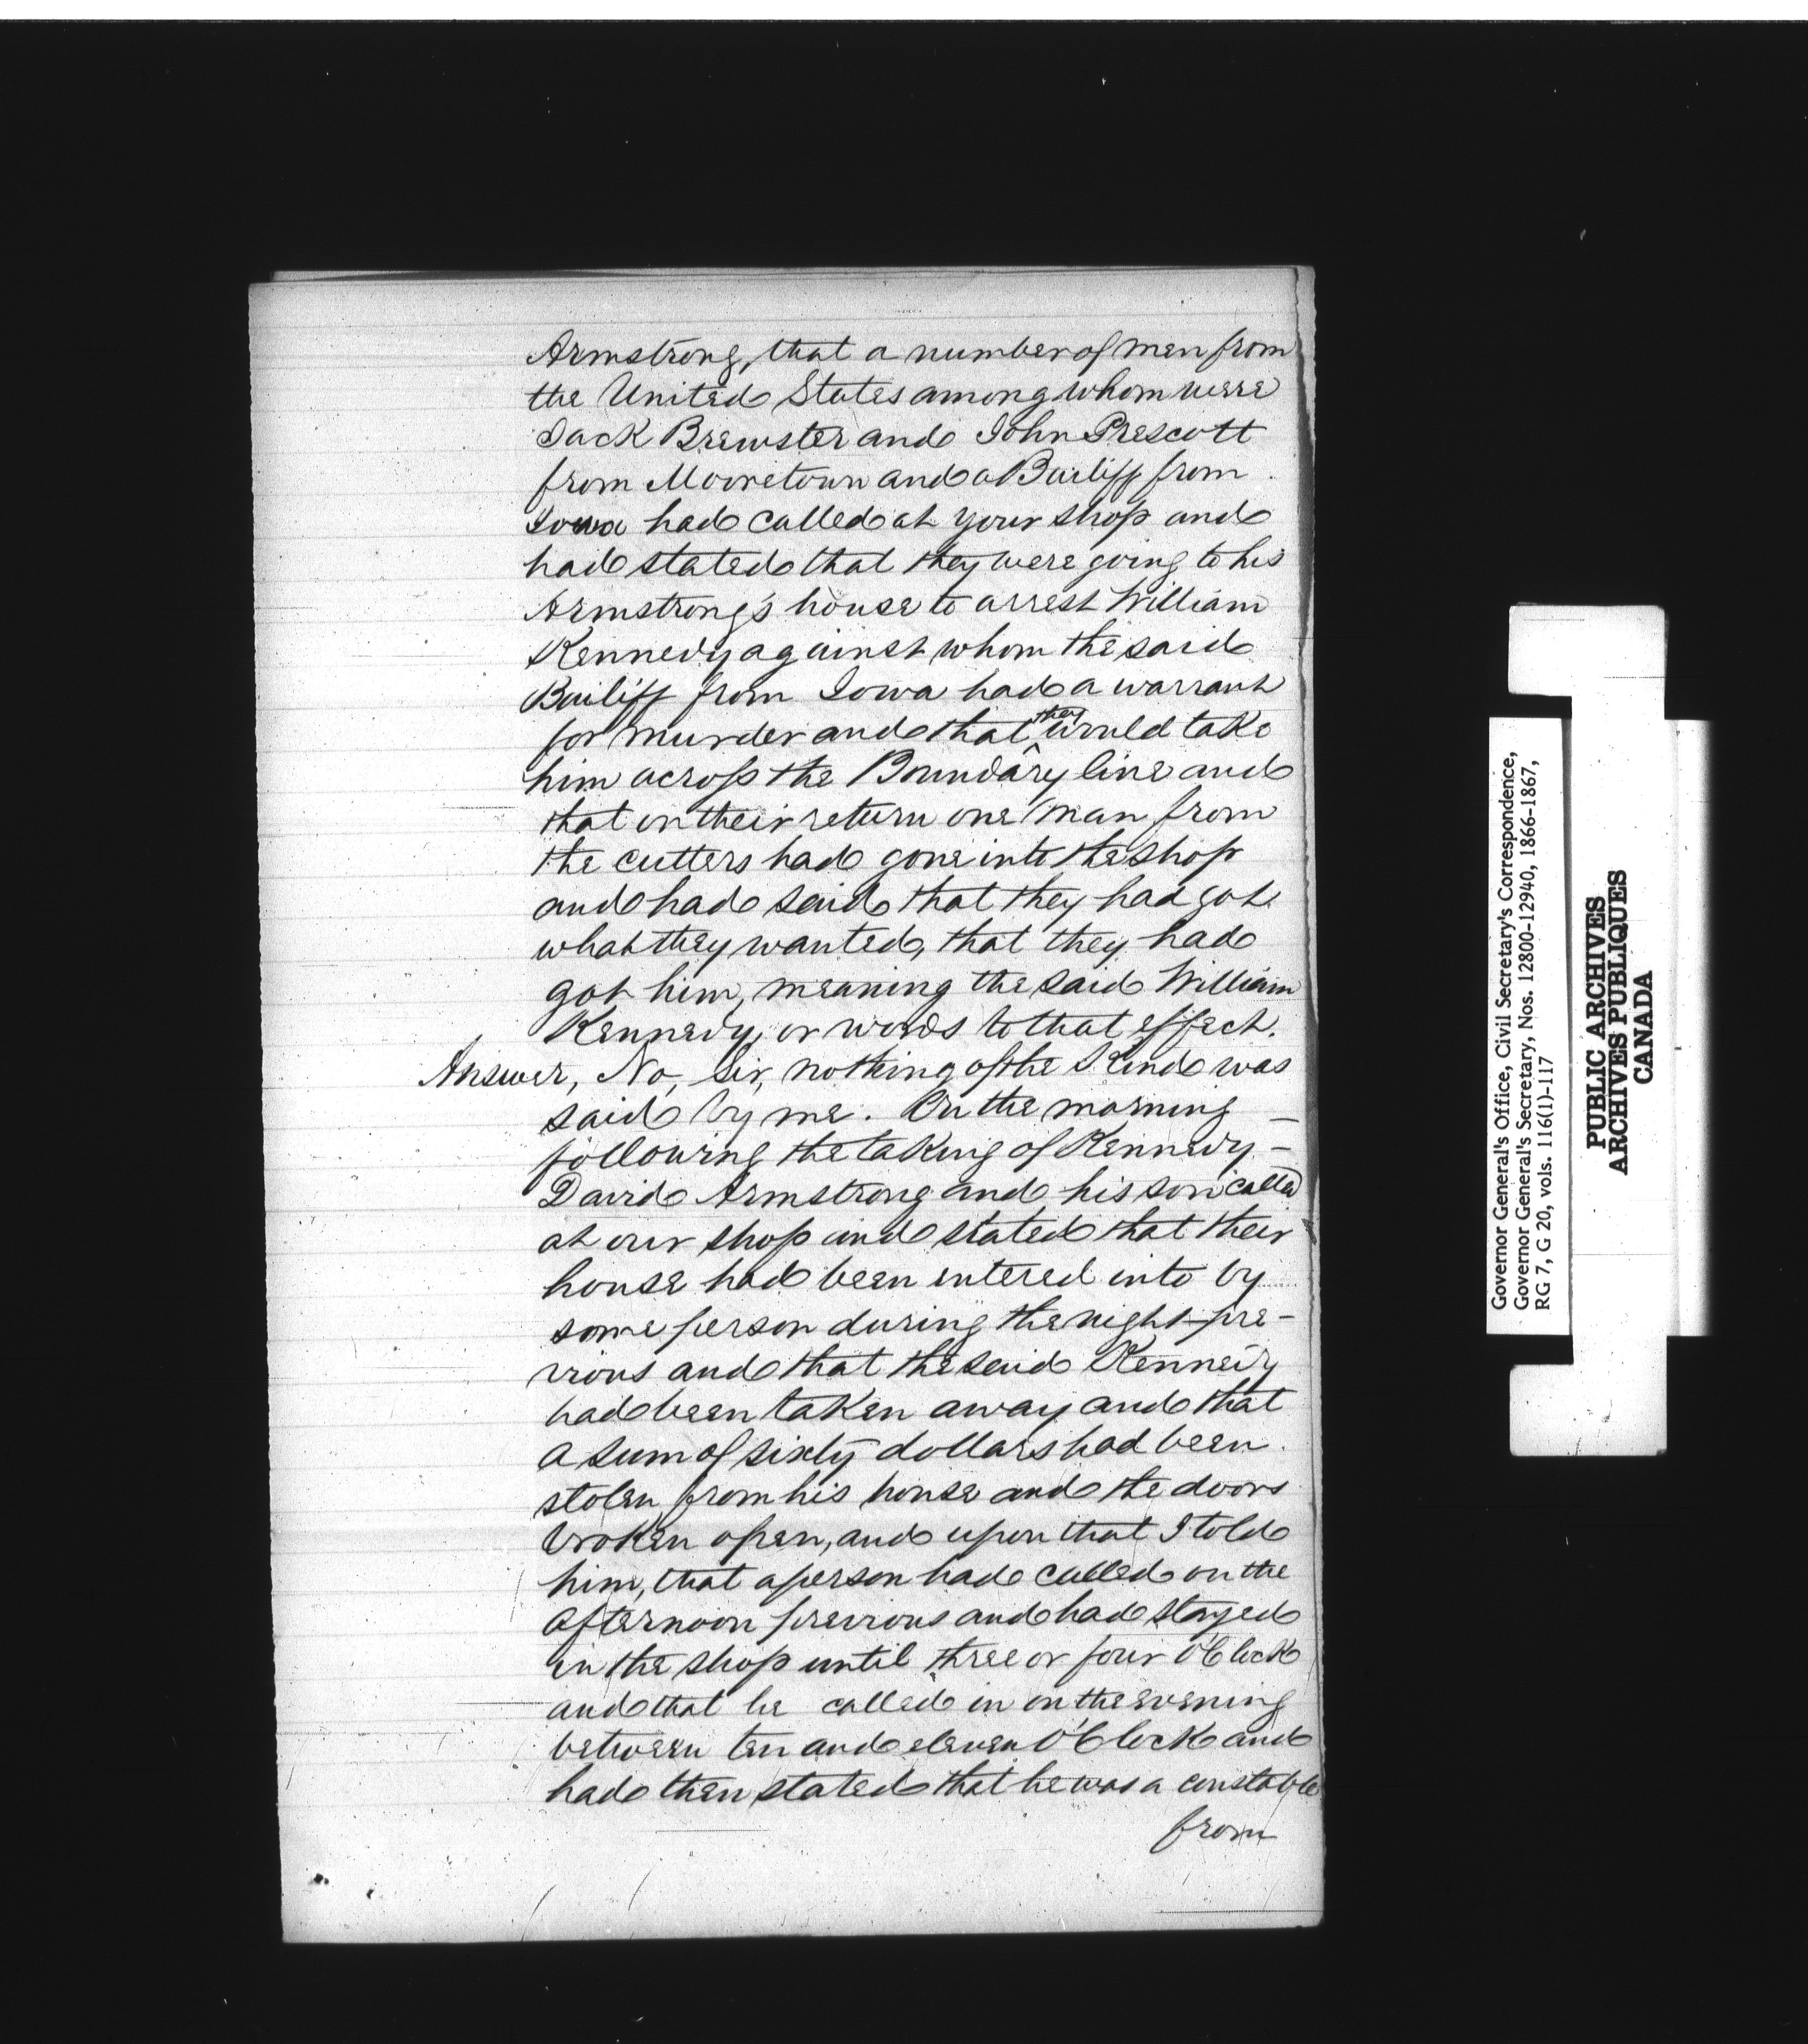 Armstrong, that a number of men from
the United States among whom were
Jack Brewster and John Prescott
from Mooretown and a Bailiff from
Iowa had called at your shop and
had stated that they were going to his
Armstrong's house to arrest William
Kennedy against whom the said
Bailiff from Iowa had a warrant
for murder and that they would take
him across the Boundary line and
that on their return one man from
the cutters had gone into the shop
and had said that they had got
what they wanted, that they had
got him, meaning the said William
Kennedy, or words to that effect.
Answer, No, sir, nothing of the kind was
said by me. On the morning –
following the taking of Kennedy –
David Armstrong and his son called
at our shop and stated that their
house had been entered into by
some person during the night pre-
vious and that the said Kennedy
had been taken away and that
a sum of sixty dollars had been
stolen from his house and the doors
broken open, and upon that I told
him, that a person had called on the
afternoon previous and had stayed
in the shop until three or four O'Clock
and that he called in on the evening
between ten and eleven O'Clock and
had then stated that he was a constable
from
Governor General's Office, Civil Secretary's Correspondence,
Governor General's Secretary, Nos. 12800-12940, 1866-1867,
RG 7, G 20, vols. 116(1)-117
PUBLIC ARCHIVES
ARCHIVES PUBLIQUES
CANADA